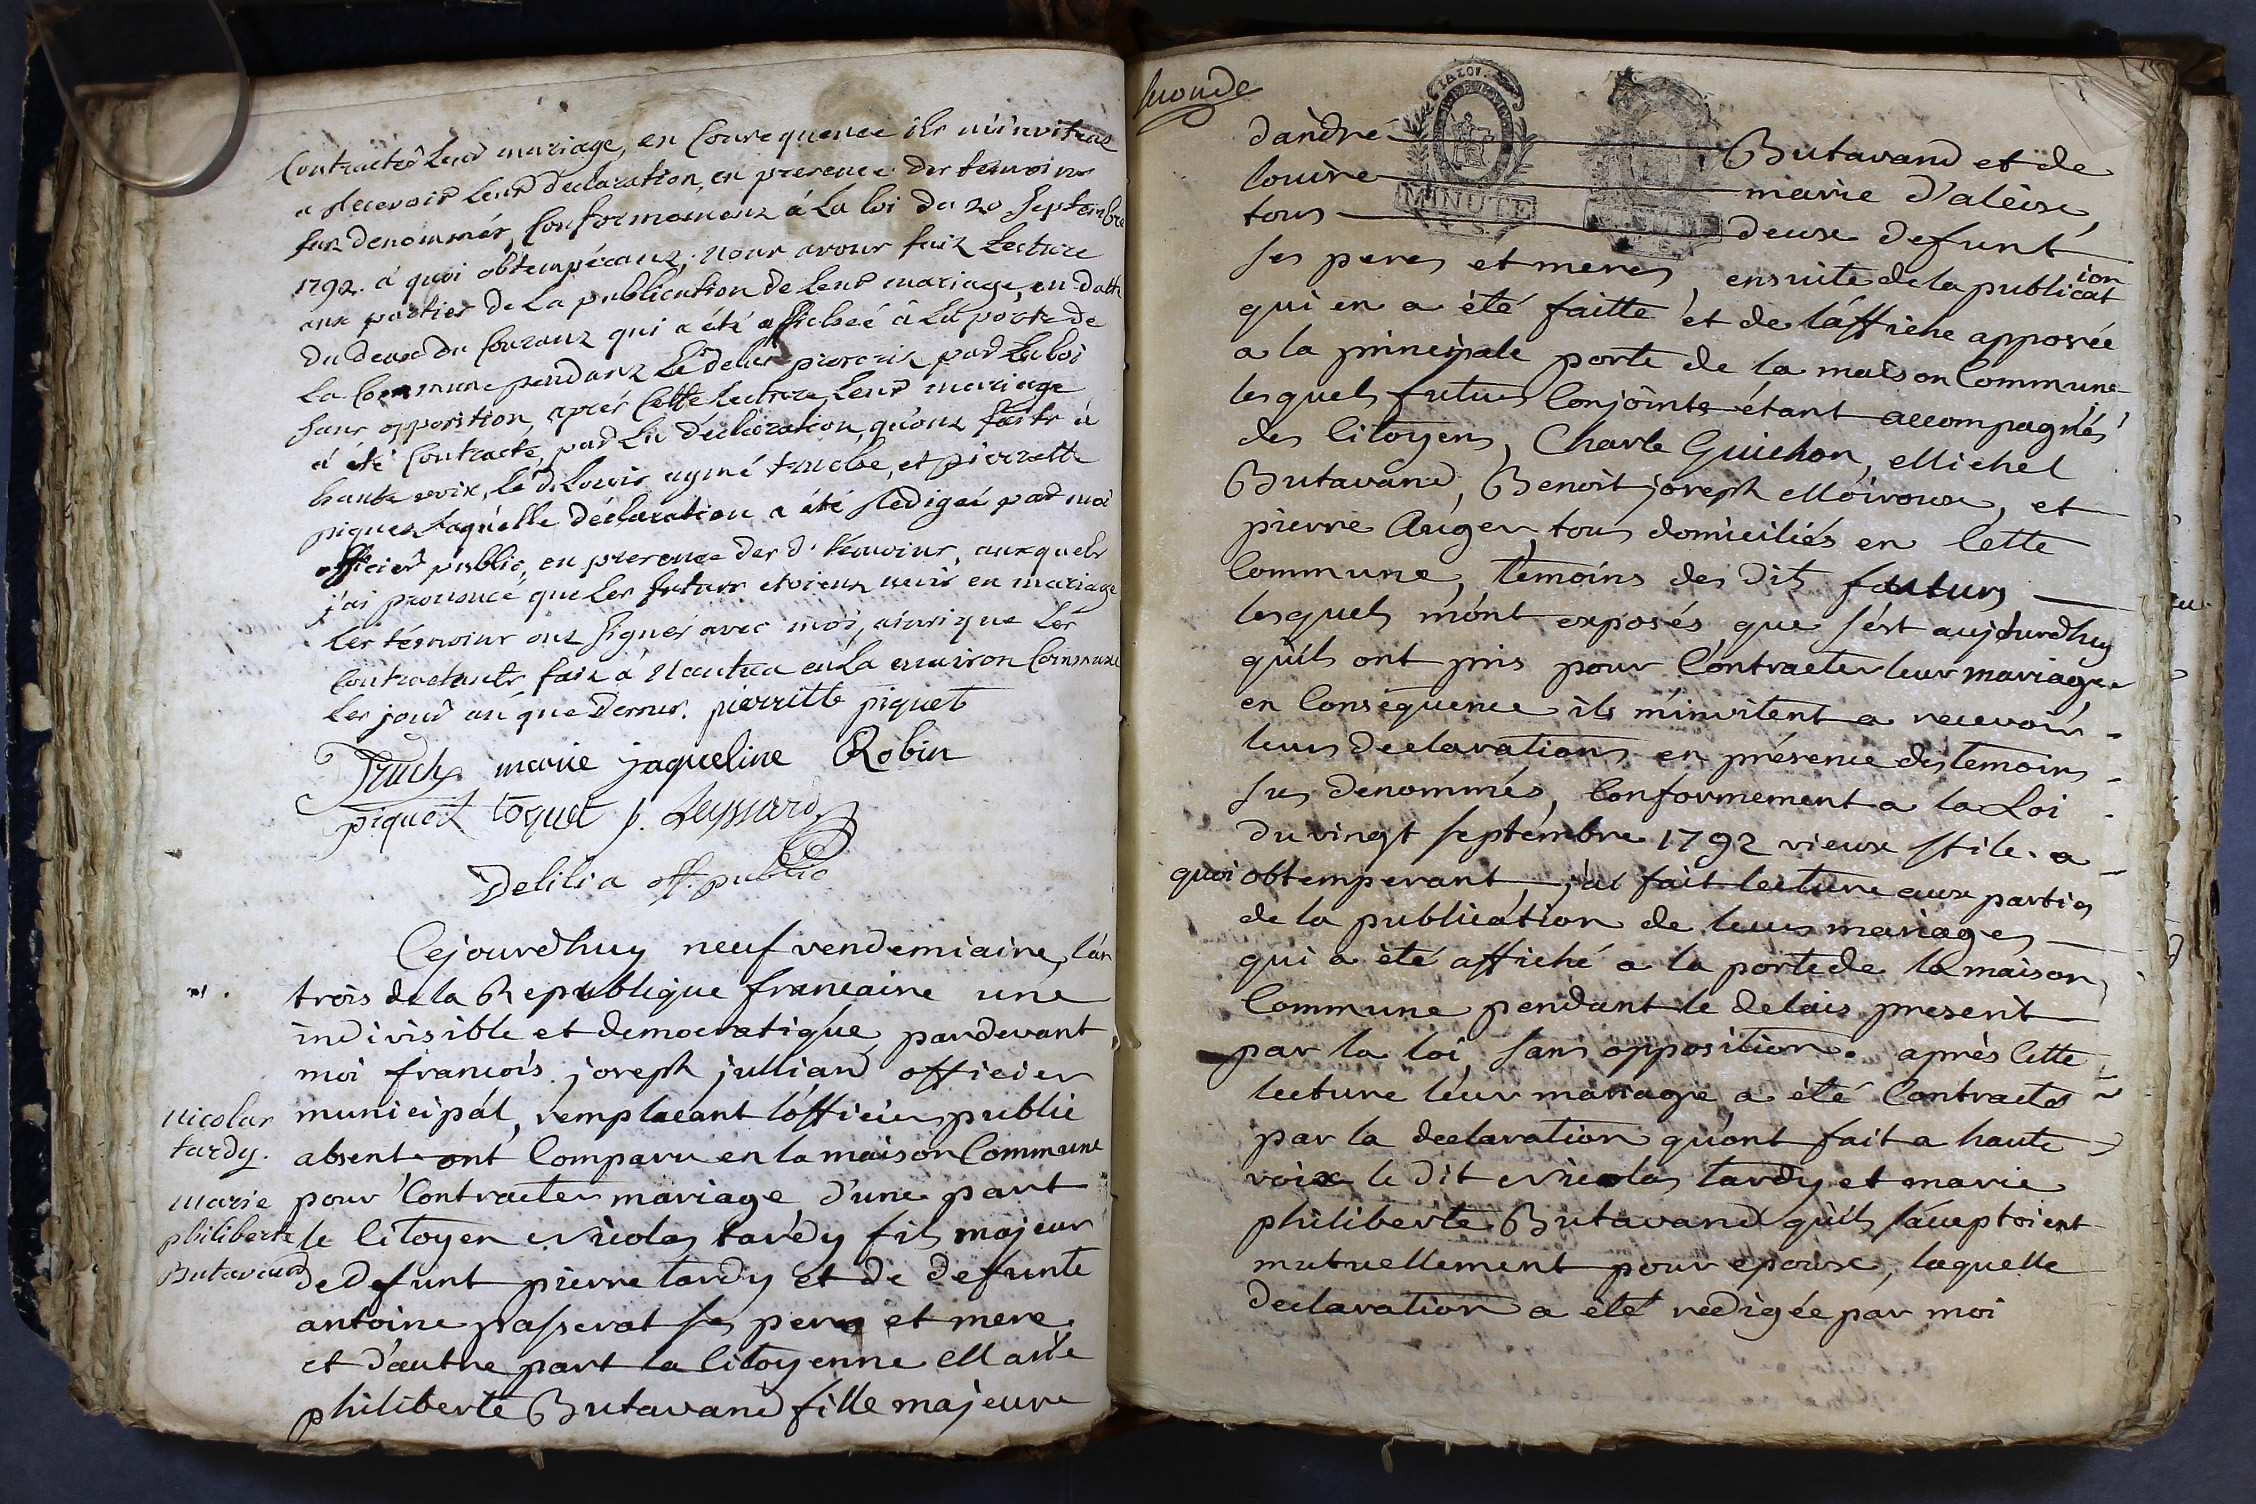 Contracter leur mariage, en Consequence ils m'invitens
a Recevoir leur declaration, en presence des temoins
sus denommés, Conformemens à la loi du 20 septembre
1792. à quoi obtempérans, nous avons fait lecture
aux parties de la publication de leur mariage, en datte
du deux du Courans qui a été affichée à la porte de
la Commune pendans le delai prescrit par la loi
sans opposition, aprés Cette lecture, leur mariage
a été Contracté, par la déclaration, qu'ons faite à
haute voix, le d. Louis aymé truche, et pierrette
piquet, laquelle déclaration a été Redigée par moi
officier public, en presence des d. témoins, auxquels
j'ai prononcé que les futurs etoiens unis en mariage
les témoins ons signés avec moi, ainsi que les
Contractants fait à Nantua en la maison Commune
les jour an que dessus. pierritte piquet
Truche marie jaqueline Robin
piquet toquet p. Leyssard
Delilia off. public
Cejourdhuy neuf vendemiaire, l'an
trois de la Republique francaise une
indivisible et democratique, pardevant
moi francois joseph jullian officier
municipál, remplacant lófficier public
absent ont Comparu en la maison Commune
pour Contracter mariage, d'une part
le Citoyen Nicolas tardy fils majeur
de defunt pierre tardy et de defunte
antoine passerat ses peres et mere
et d'autre part la Citoyenne Marie
philiberte Butavand fille majeure
Nicolas
tardy.
Marie
philiberte
Butavand
seconde
TIMBRE
MINUTE
MINUTE
dàndré Butavand et de
louise marie d'alèise,
tous deux defunt
ses peres et meres, ensuite de la publication
qui en a été faitte et de láffiche apposée
a la principale porte de la maison Commune
lesquels futurs Conjoints étant accompagnés
des Citoyens, Charle Guichon, Michel
Butavand, Benoit joseph Moiroux, et
pierre Auger, tous domiciliés en Cette
Commune, temoins des dits fauturs
lesquels mónt exposés que sést aujourdhuy
qu'ils ont pris pour Contracter leur mariage
en Conséquence ils m'invitent a recevoir
leurs declarations en présence des temoins
sus denommés, Conformement a la Loi
du vingt septémbre 1792 vieux stile. a
quoi obtemperant, j'ai fait lecture aux parties
de la publication de leurs mariages
qui a èté affiché a la porte de la maison
Commune pendant le delais prescrit
par la loi, sans opposition. après Cette
lecture leur mariage a été Contracter
par la declaration qu'ont fait a haute
voix le dit Nicolas tardy et marie
philiberte Butavand qu'ils s'acceptoient
mutuellement pour epoux, laquelle
declaration a èté redigée par moi